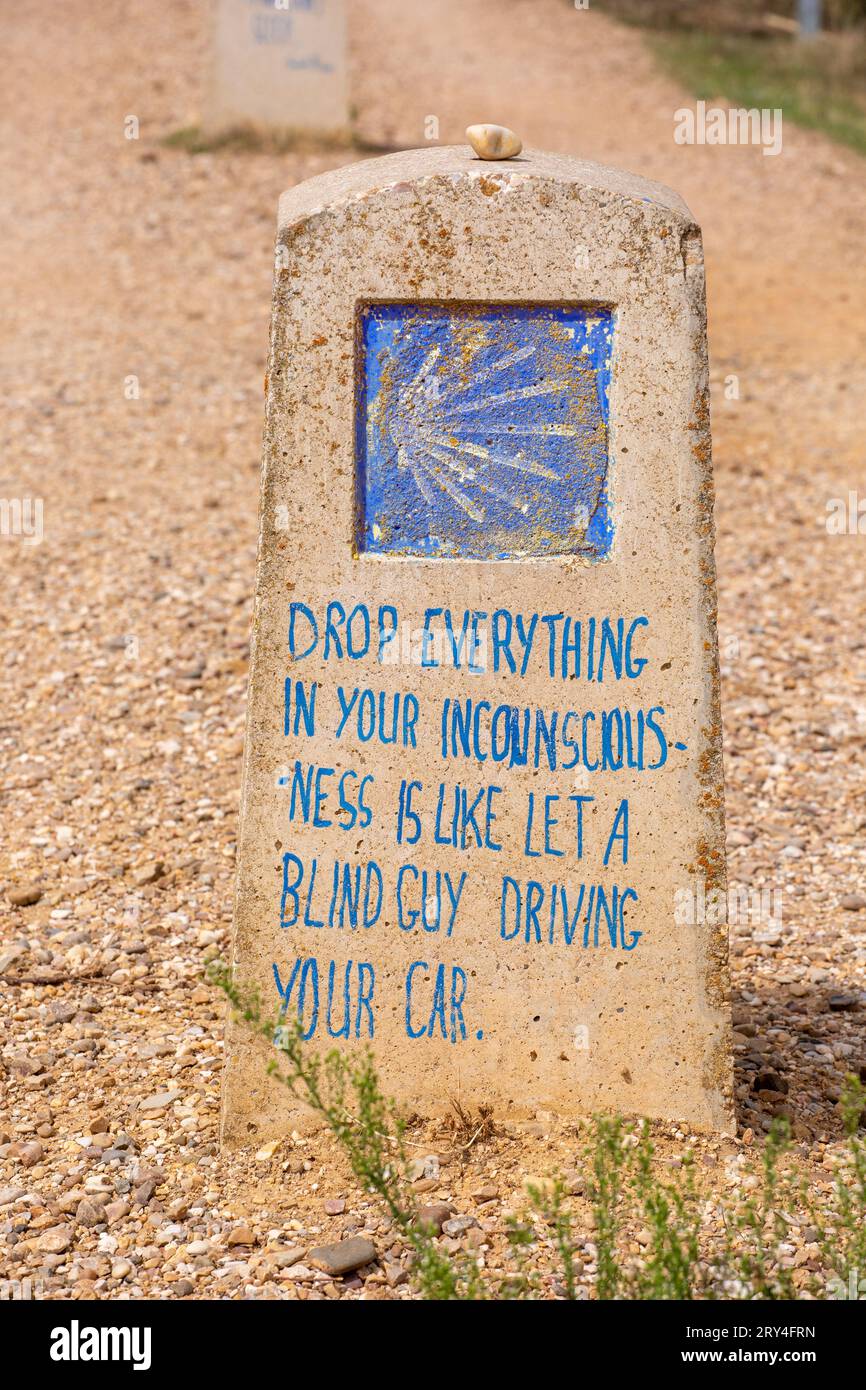 DROP EVERYTHING
IN YOUR INCOUNSCIOUS-
-NESS IS LIKE LET A
BLIND GUY DRIVING
YOUR CAR.
alamy
Image ID: 2RY4FRN
www.alamy.com